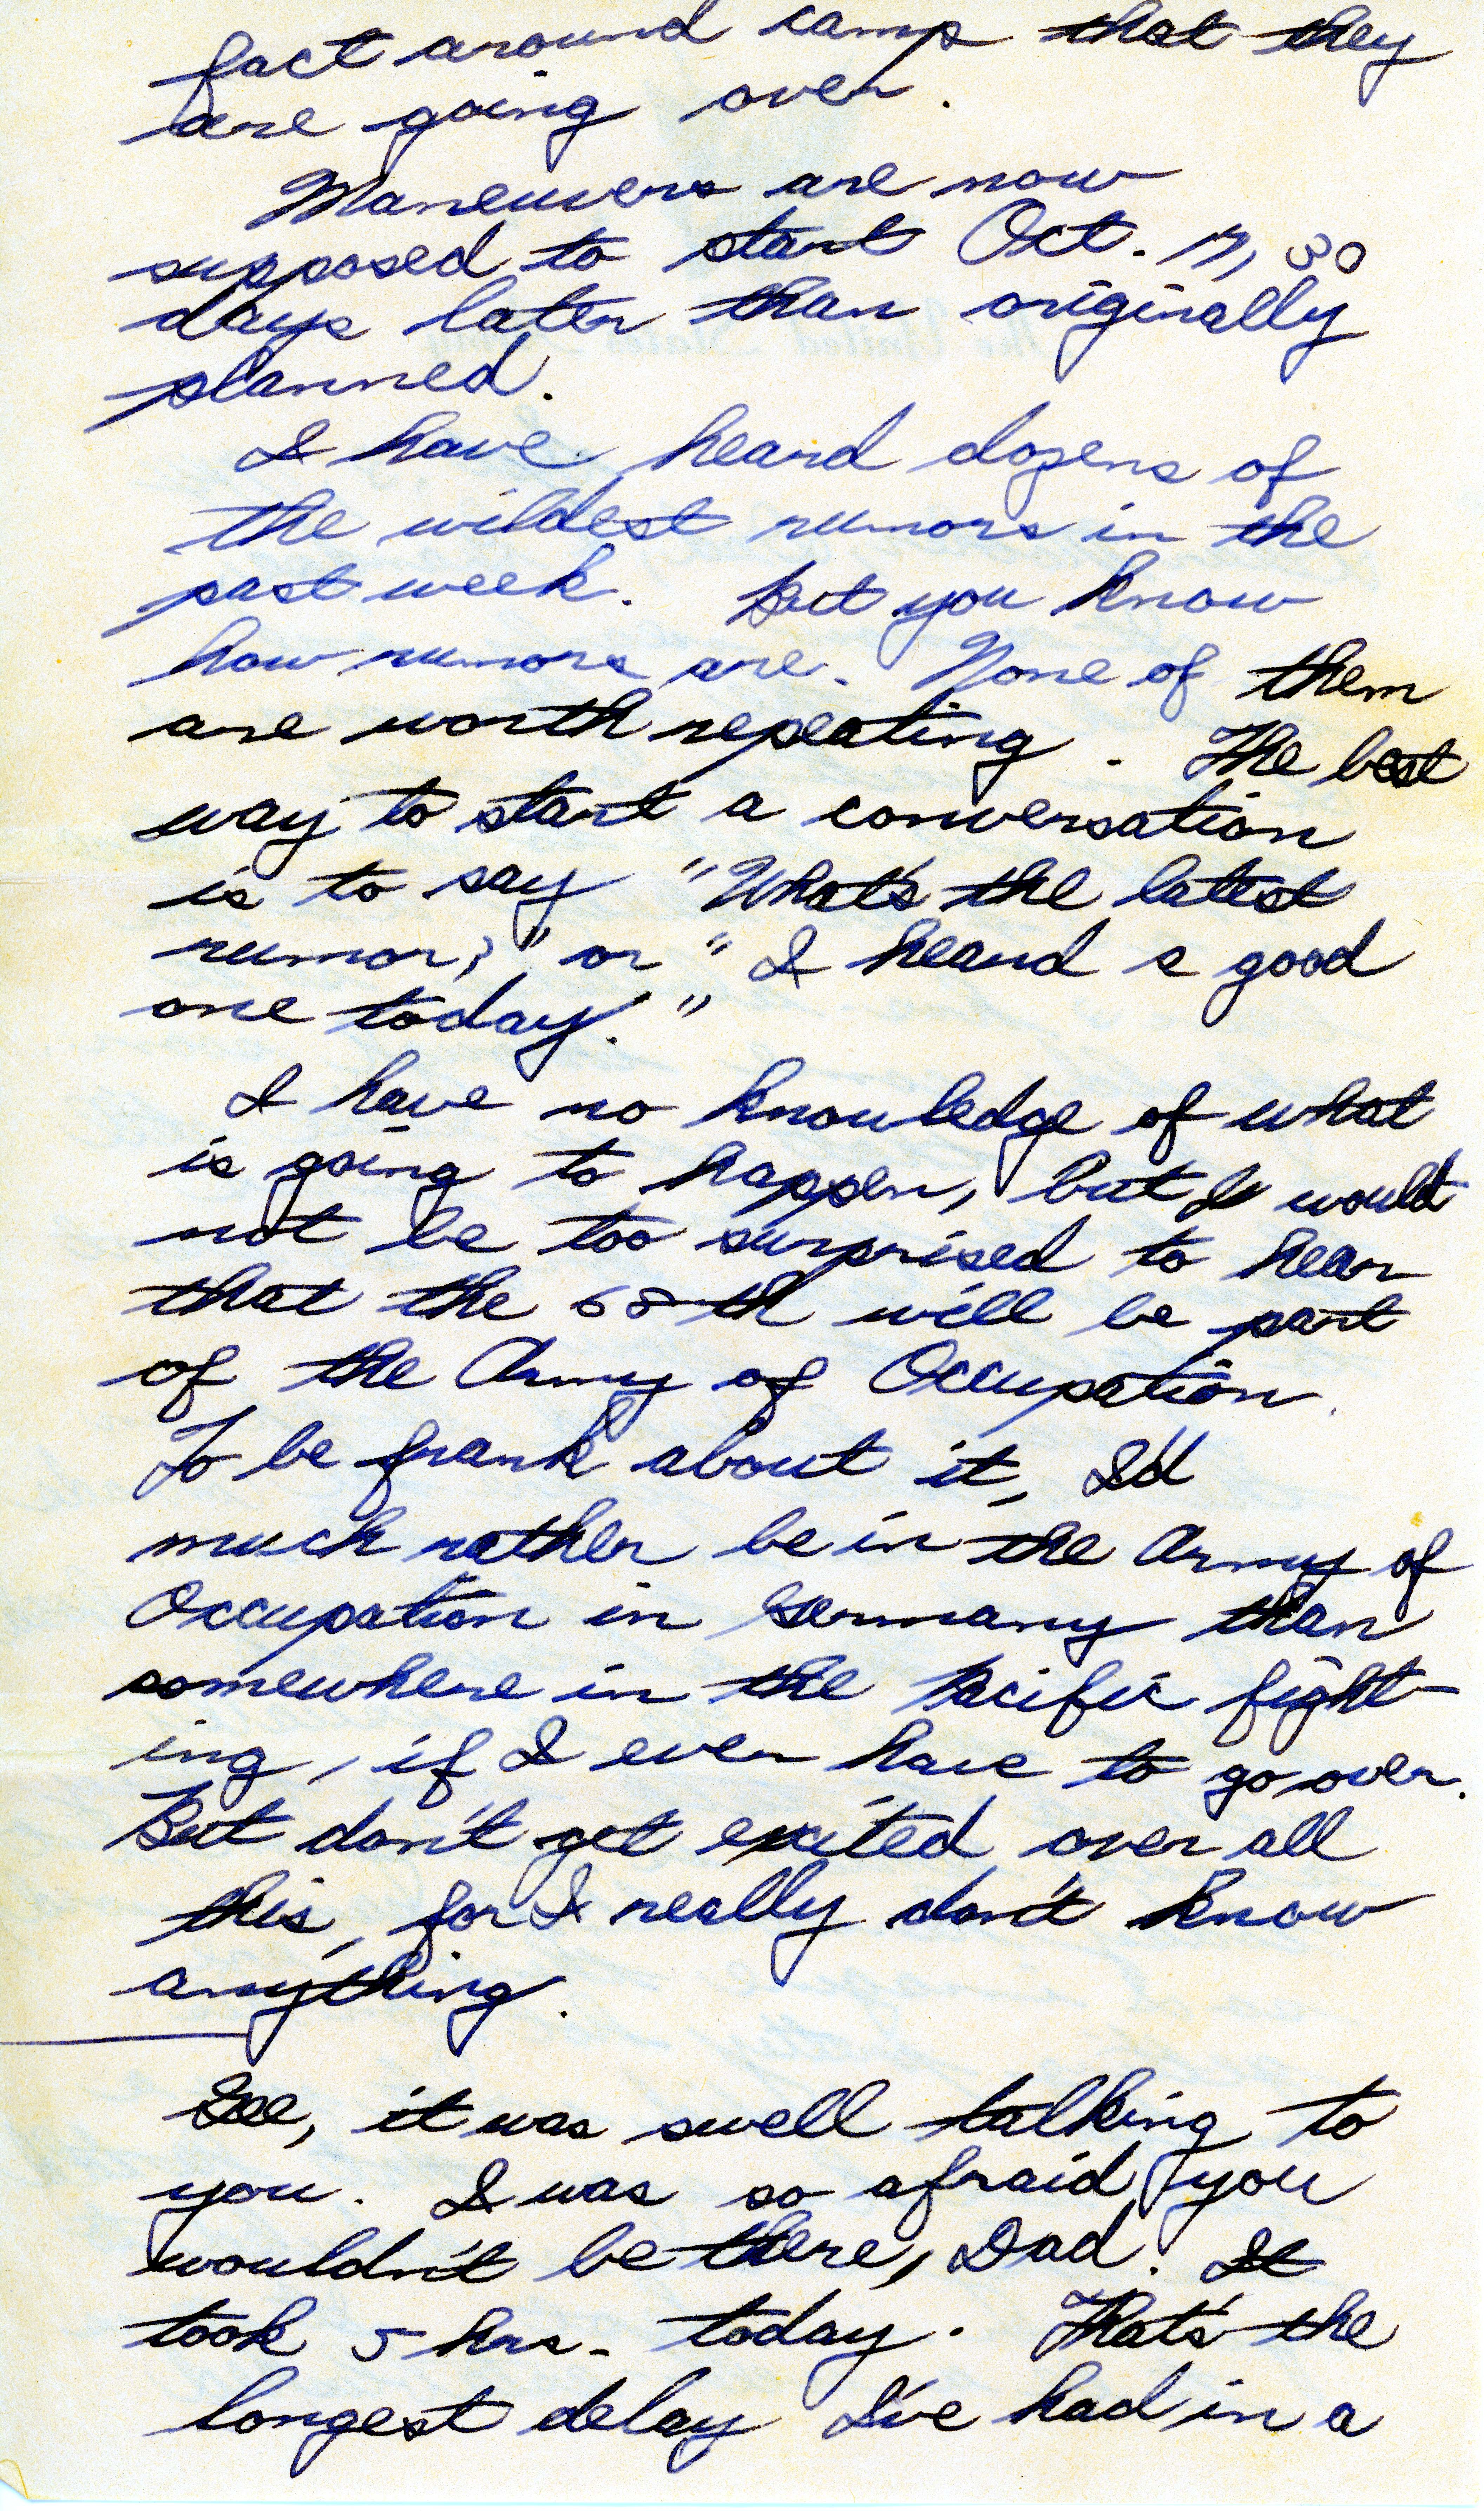 fact around camp that they
are going over.
Maneuvers are now
supposed to start Oct. 17, 30
days later than originally
planned.
I have heard dozens of
the wildest rumors in the
past week. But you know
how rumors are. None of them
are worth repeating. The best
way to start a conversation
is to say "What's the latest
rumor?" or "I heard a good
one today."
I have no knowledge of what
is going to happen, but I would
not be too surprised to hear
that the 68th will be part
of the Army of Occupation.
To be frank about it, I'd
much rather be in the Army of
Occupation in Germany than
somewhere in the Pacific fight-
ing, if I ever have to go over.
But don't get excited over all
this, for I really don't know
anything.
Gee, it was swell talking to
you. I was so afraid you
wouldn't be there, Dad. It
took 5 hrs. today. That's the
longest delay I've had in a